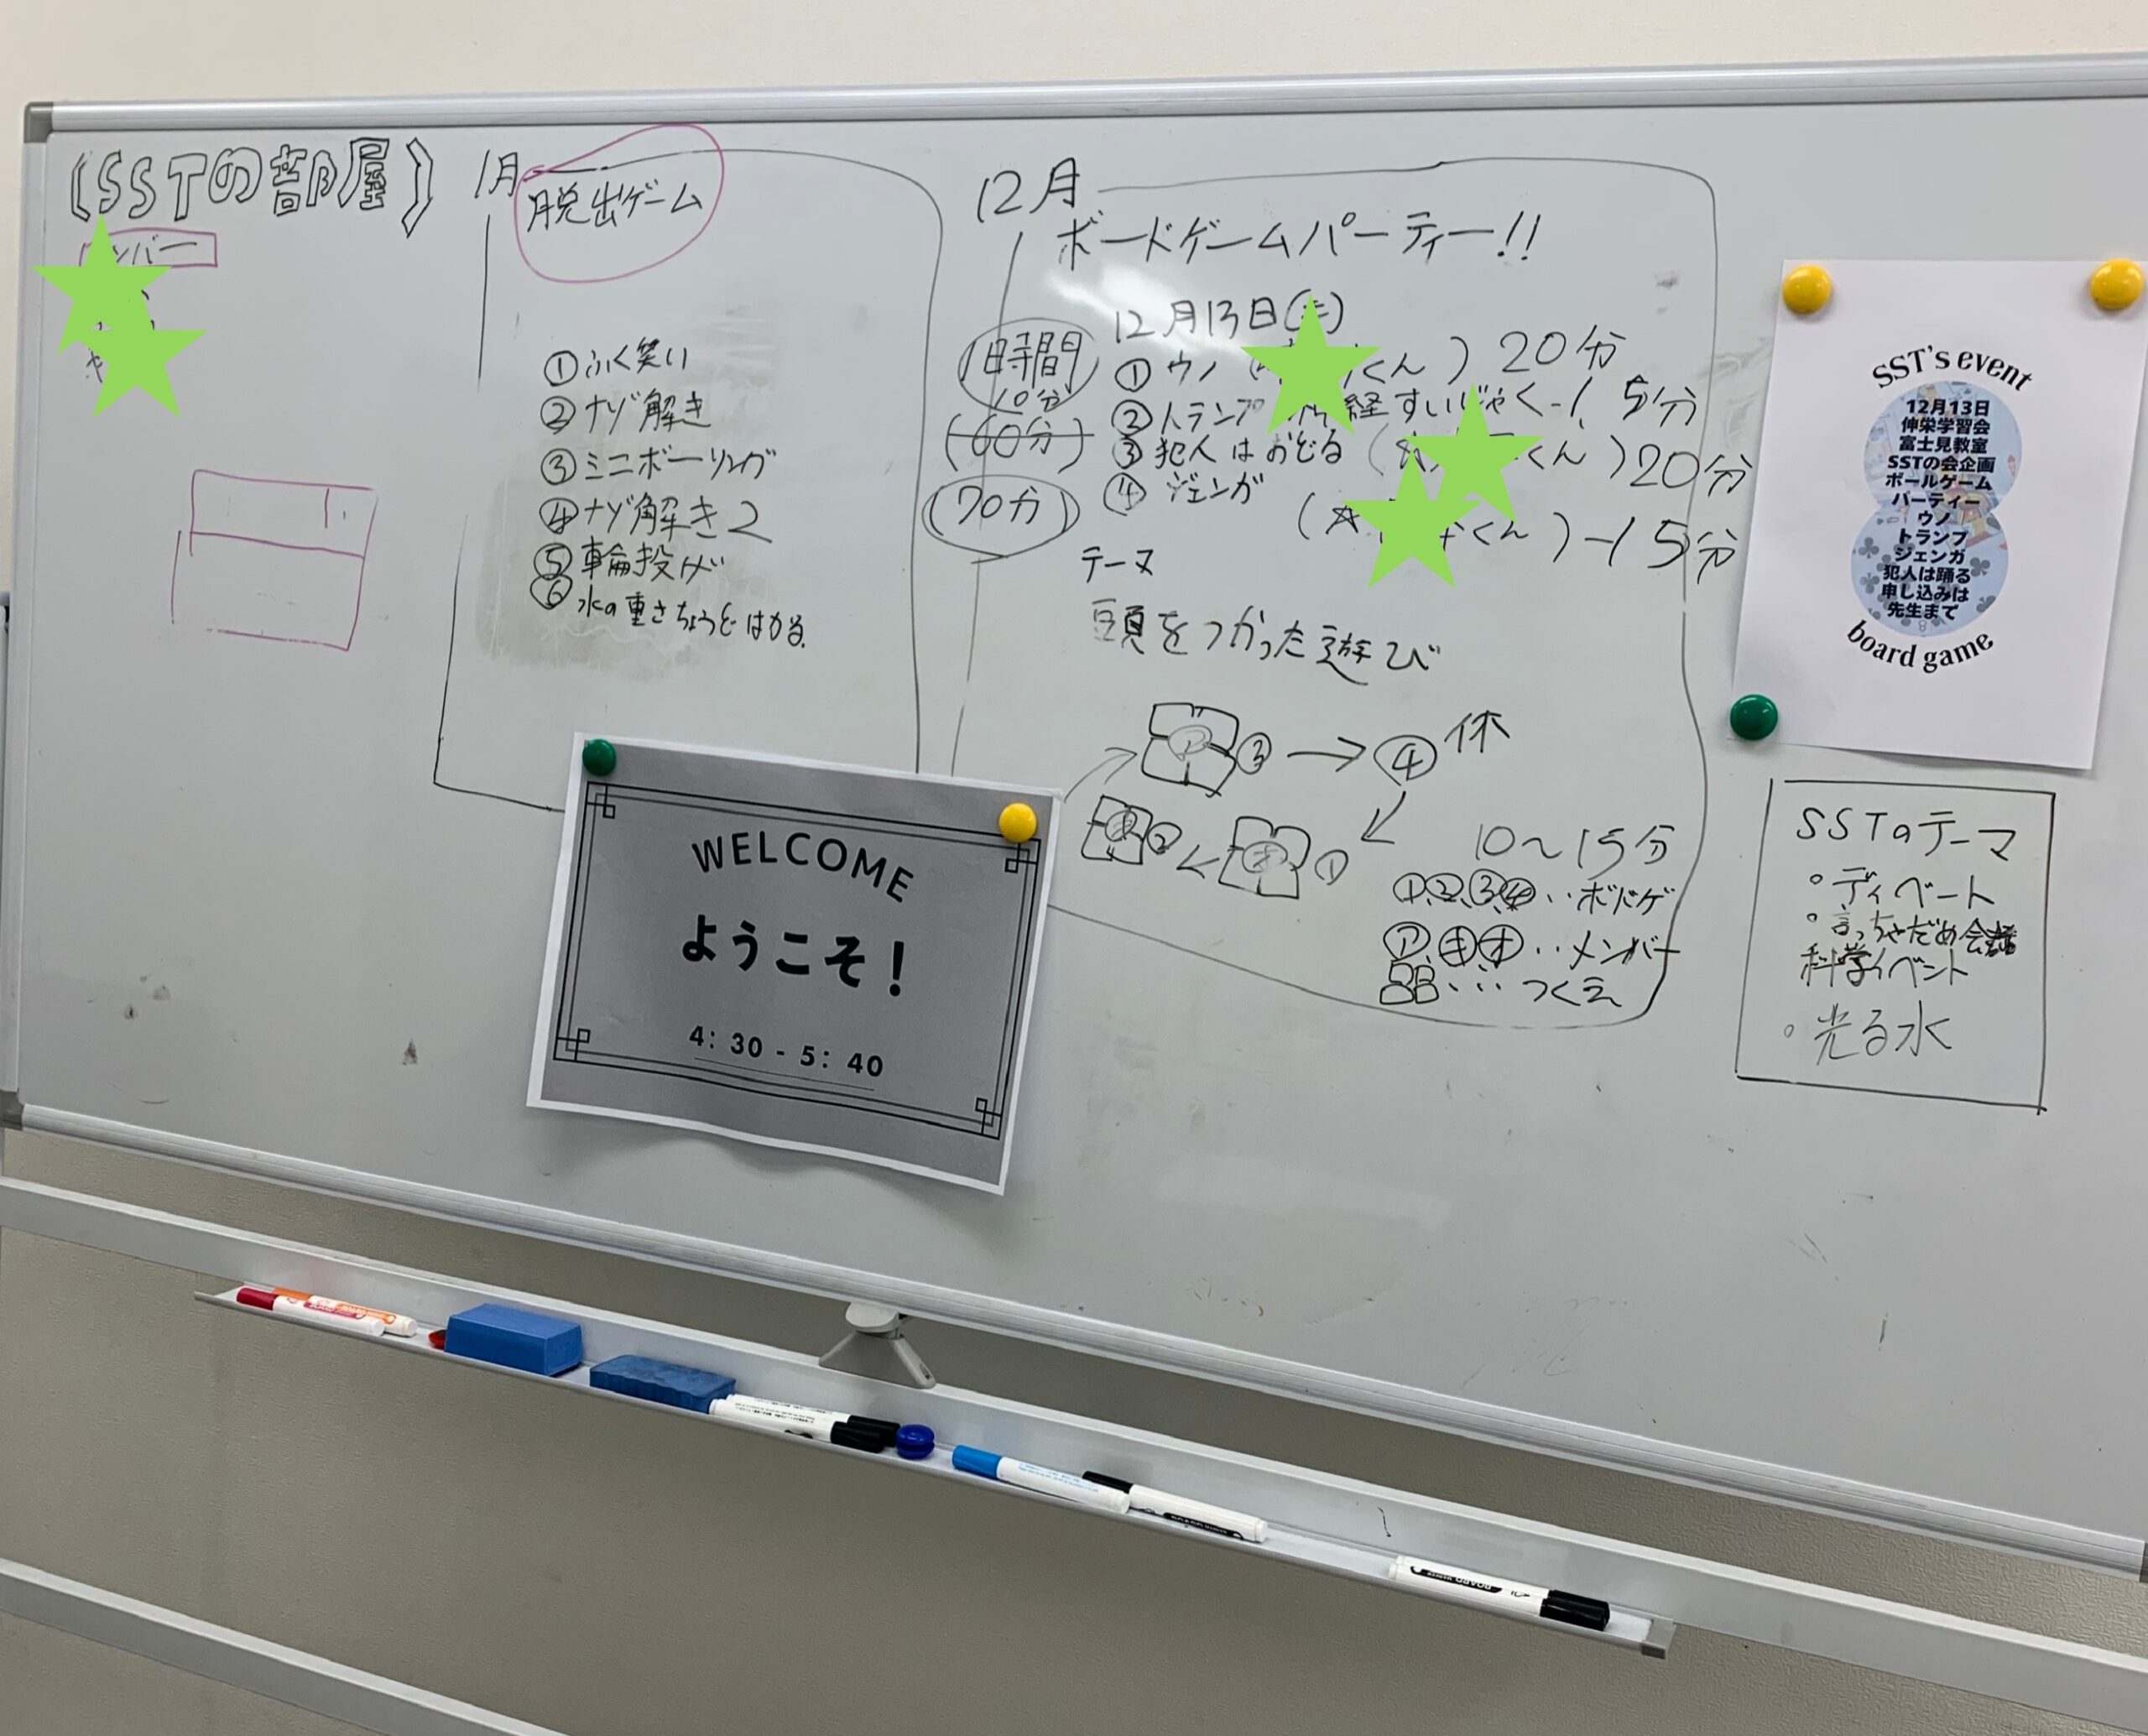 {SSTの部屋}
ンバー
1月
脱出ゲーム
①ふく笑い
②ナゾ解き
③ミニボーリング
④ナゾ解き2
⑤輪投げ
⑥水の重さちょうどはかる.
12月
ボードゲームパーティー!!
12月13日
1時間
10分
(60分)
(70分)
①ウノ くん)20分
②トランプ 経すいじゃく-15分
③犯人はおどる くん)20分
④ジェンガ
くん)-15分
テーマ
頭をつかった遊び
ア ③→④休
②←①
10~15分
①②③④‥ボドゲ
ア、キ、オ‥メンバー
…つくえ
WELCOME
ようこそ!
4:30-5:40
SST's event
12月13日
伸栄学習会
富士見教室
SSTの会企画
ボールゲーム
パーティー
ウノ
トランプ
ジェンガ
犯人は踊る
申し込みは
先生まで
board game
SSTのテーマ
°ディベート
°言っちゃだめ会話
科学イベント
°光る水